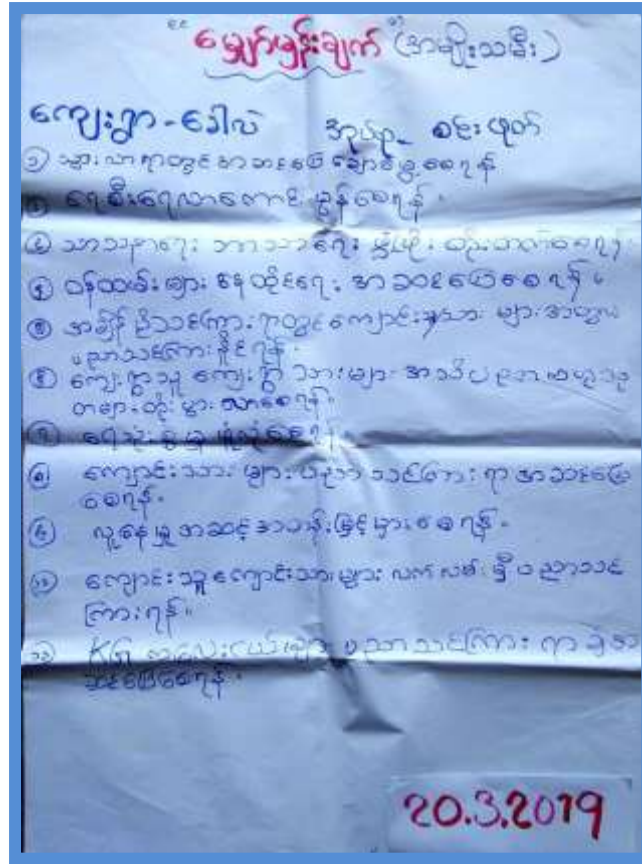 "မျှော်မှန်းချက်" (အမျိုးသမီး)
ကျေးရွာ - ဒေါလဲ အုပ်စု - စမ်းဖုတ်
၁ သွားလာရာတွင်အဆင်ပြေချောမွေ့စေရန်
၂ ရေစီးရေလာကောင်းမွန်စေရန်။
၃ သာသနာရေး ဘာသာရေး
၄ ဝန်ထမ်းများ နေထိုင်ရေး အဆင်ပြေစေရန်။
၅ အချိန် ကျောင်းသားများအတွက်
ပညာသင်ကြားနိုင်ရန်။
၆ ကျေးရွာသူ ကျေးရွာသားများ အသိပညာ
တိုးပွားလာစေရန်။
၇ ရေသုံးစွဲမှု ဖူလုံစေရန်
၈ ကျောင်းသားများပညာသင်ကြားရာအဆင်ပြေ
စေရန်။
၉ လူနေမှုအဆင့်အတန်းမြင့်မားစေရန်။
၁၀ ကျောင်းသူကျောင်းသားများ လက်လှမ်းမှီပညာသင်
ကြားရန်။
၁၁ KG ကလေးငယ်များ ပညာသင်ကြားရာ၌အ
ဆင်ပြေစေရန်။
20.3.2019